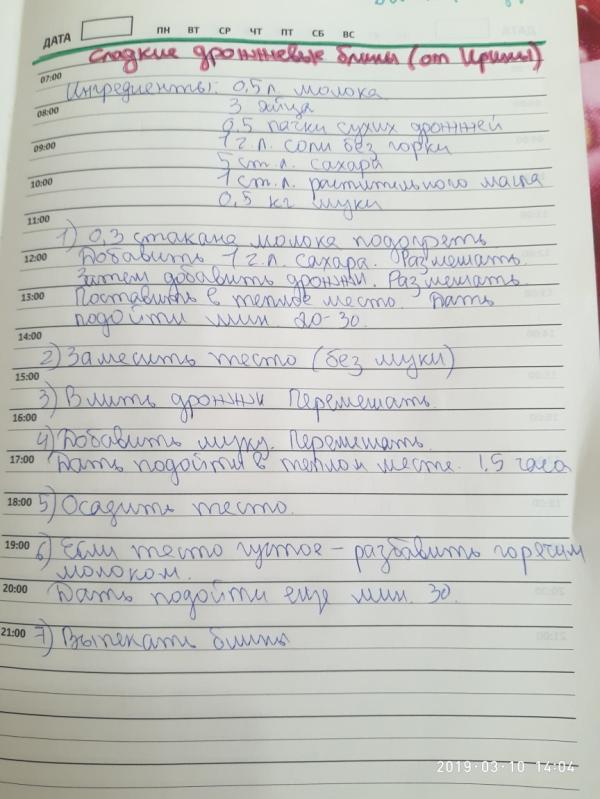 ДАТА ПН ВТ СР ЧТ ПТ СБ ВС
Сладкие дрожжевые блины (от Ирины)
07:00
Ингредиенты: 0,5 л молока
3 яйца
08:00
0,5 пачки сухих дрожжей
1 г.л. соли без горки
09:00
5 ст.л. сахара
1 ст.л. растительного масла
10:00
0,5 кг муки
11:00
1) 0,3 стакана молока подогреть
12:00 Добавить 1 г.л. сахара. Размешать.
Затем добавить дрожжи. Размешать.
13:00 Поставить в теплое место. Дать
подойти мин. 20-30.
14:00
2) Замесить тесто (без муки)
15:00
3) Влить дрожжи Перемешать.
16:00
4) Добавить муку. Перемешать.
17:00 Дать подойти в теплом месте. 1,5 часа
18:00 5) Осадить тесто.
19:00 6) Если тесто густое - разбавить горячим
молоком.
20:00 Дать подойти еще мин. 30.
21:00 7) Выпекать блины
2019-03-10 14:04